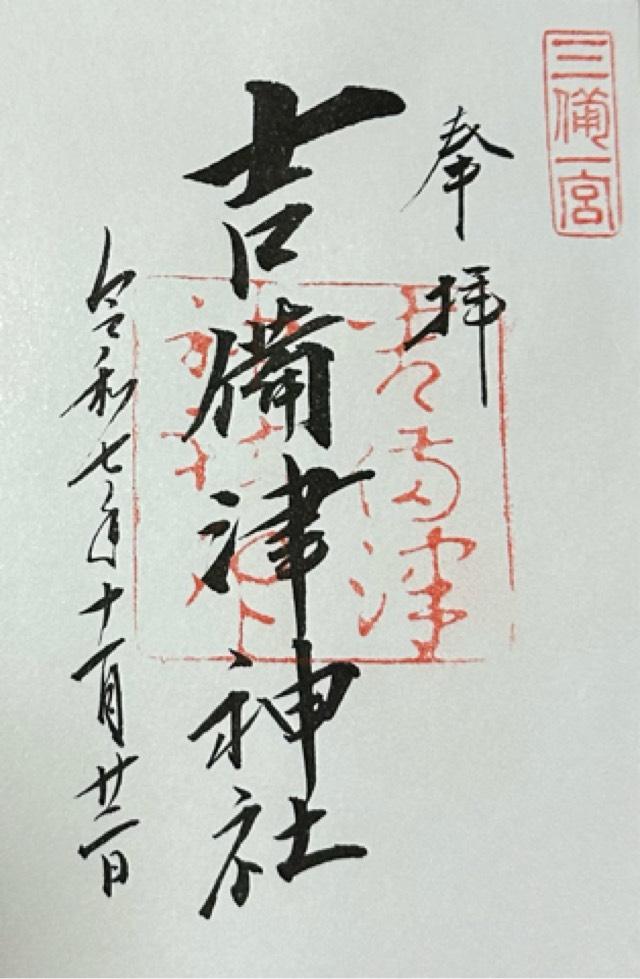 三備一宮
奉拝
吉備津神社
吉備津
神社
令和七年十一月廿二日